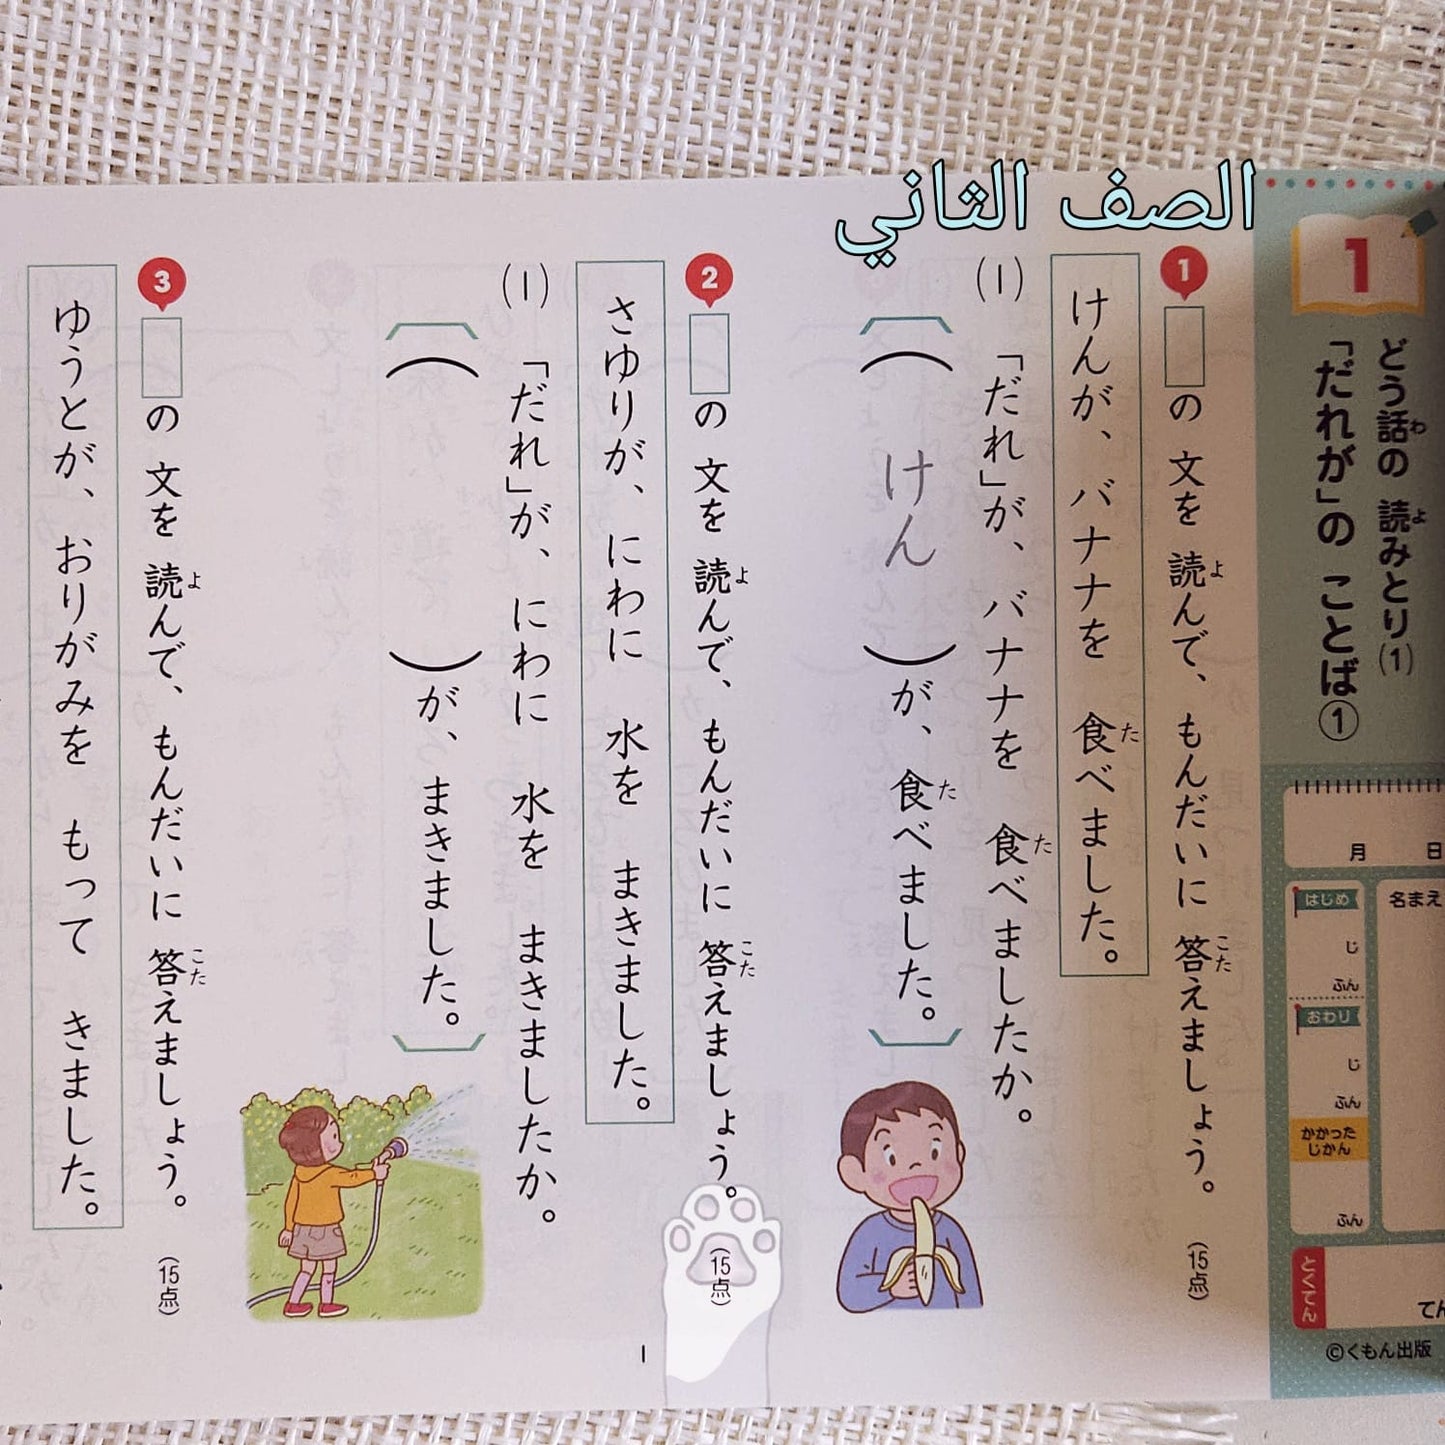 الصف الثاني
1
どう話の 読みとり(1)
わ よ
「だれが」の ことば①
月 日
名まえ
はじめ
じ
ふん
おわり
じ
ふん
かかった
じかん
ふん
とくてん
てん
©くもん出版
1
□の 文を 読んで、もんだいに 答えましょう。
よ こた
(15点)
けんが、バナナを 食べました。
た
(1) 「だれ」が、バナナを 食べましたか。
た
( けん )が、食べました。
た
2
□の 文を 読んで、もんだいに 答えましょう。
よ こた
(15点)
さゆりが、にわに 水を まきました。
(1) 「だれ」が、にわに 水を まきましたか。
( )が、まきました。
3
□の 文を 読んで、もんだいに 答えましょう。
よ こた
(15点)
ゆうとが、おりがみを もって きました。
1